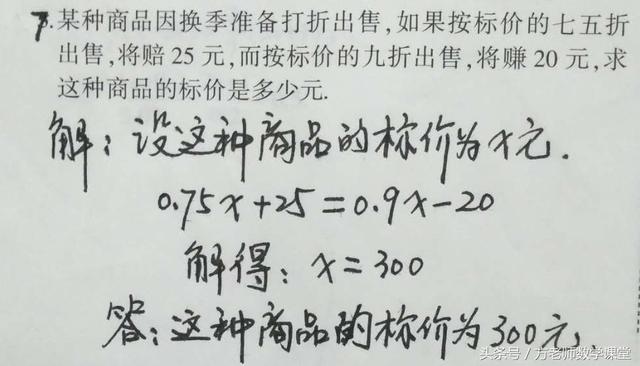 7.某种商品因换季准备打折出售,如果按标价的七五折
出售,将赔25元,而按标价的九折出售,将赚20元,求
这种商品的标价是多少元.
解:设这种商品的标价为x元.
0.75x+25=0.9x-20
解得:x=300
答:这种商品的标价为300元.
头条号/方老师数学课堂